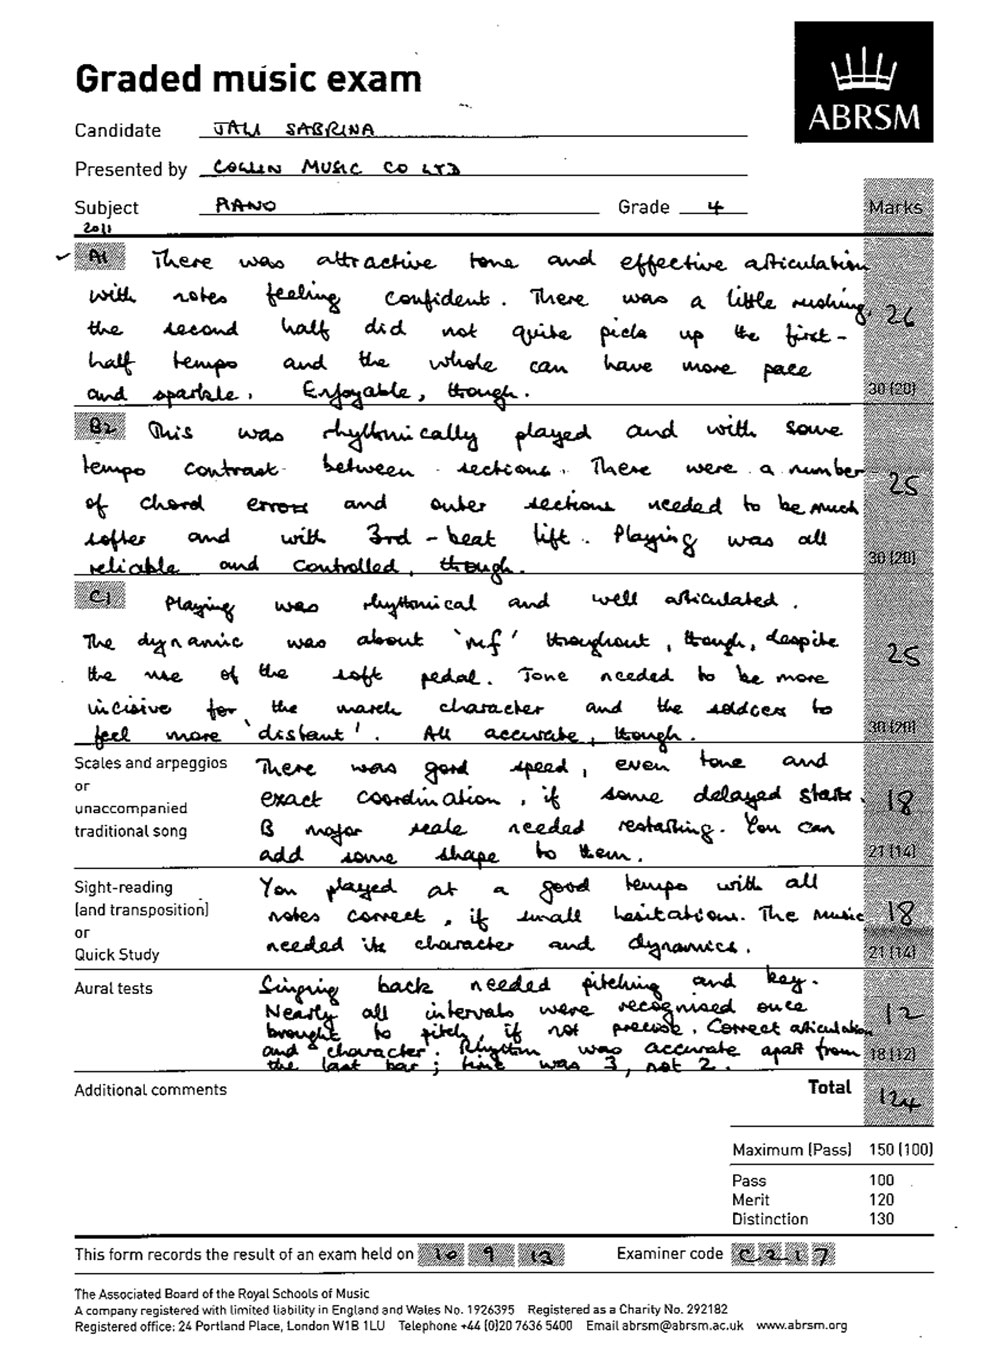 Graded music exam
ABRSM
Candidate JALI SABRINA
Presented by COLLIN MUSIC CO LTD
Subject PIANO Grade 4 Marks
2011
A1 There was attractive tone and effective articulation
with notes feeling confident. There was a little rushing,
26
the second half did not quite pick up the first-
half tempo and the whole can have more pace
and sparkle. Enjoyable, though.
30 (20)
B2 This was rhythmically played and with some
tempo contrast between sections. There were a number
25
of chord errors and outer sections needed to be much
softer and with 3rd-beat lift. Playing was all
reliable and controlled, though.
30 (20)
C1 Playing was rhythmical and well articulated.
The dynamic was about 'mf' throughout, though, despite
25
the use of the soft pedal. Tone needed to be more
incisive for the march character and the soldiers to
feel more 'distant'. All accurate, though.
30 (20)
Scales and arpeggios
or
unaccompanied
traditional song
There was good speed, even tone and
exact coordination, if some delayed starts.
18
B major scale needed restarting. You can
add some shape to them.
21 (14)
Sight-reading
(and transposition)
or
Quick Study
You played at a good tempo with all
notes correct, if small hesitations. The music
18
needed its character and dynamics.
21 (14)
Aural tests
Singing back needed pitching and key.
Nearly all intervals were recognised once
12
brought to pitch, if not precise. Correct articulation
and character. Rhythm was accurate apart from
18 (12)
the last bar; time was 3, not 2.
Additional comments
Total 124
Maximum (Pass) 150 (100)
Pass 100
Merit 120
Distinction 130
This form records the result of an exam held on 10 9 13 Examiner code C 2 1 7
The Associated Board of the Royal Schools of Music
A company registered with limited liability in England and Wales No. 1926395 Registered as a Charity No. 292182
Registered office: 24 Portland Place, London W1B 1LU Telephone +44 (0)20 7636 5400 Email abrsm@abrsm.ac.uk www.abrsm.org